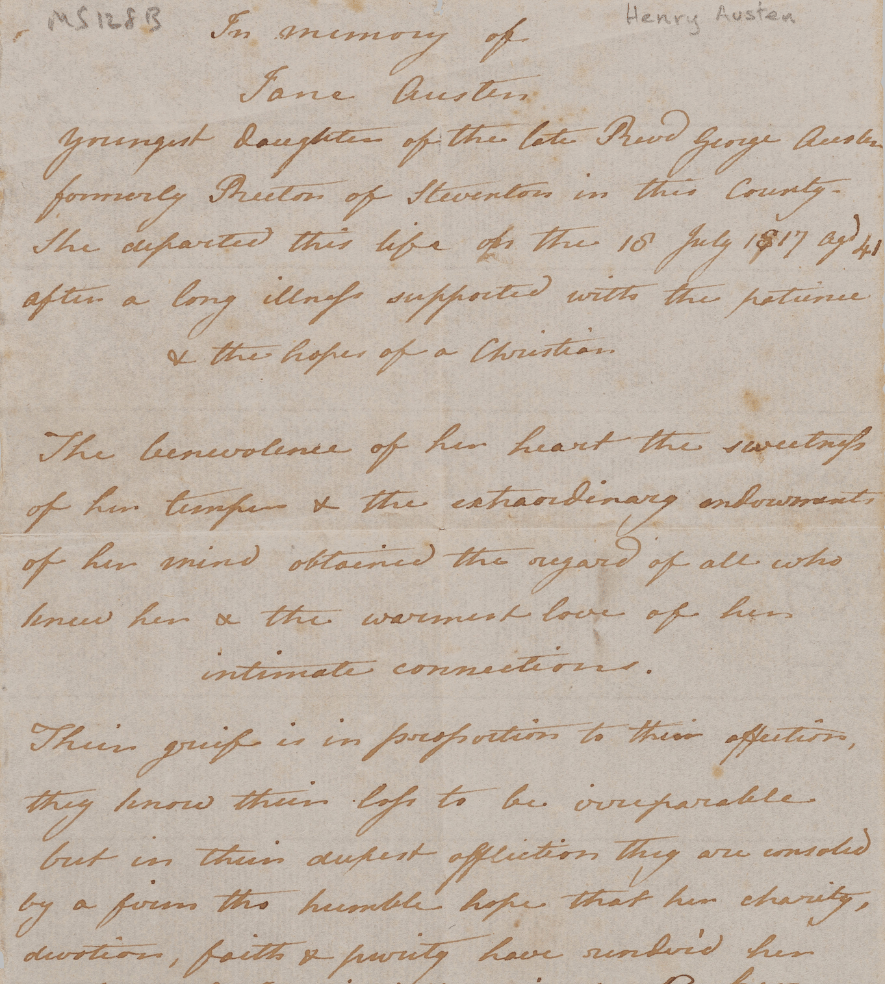 MS128B
Henry Austen
In memory of
Jane Austen
youngest daughter of the late Revd George Austen
formerly Rector of Steventon in this County-
She departed this life on the 18 July 1817 agd 41
after a long illness supported with the patience
& the hopes of a Christian
The benevolence of her heart the sweetness
of her temper & the extraordinary endowments
of her mind obtained the regard of all who
knew her & the warmest love of her
intimate connections.
Their grief is in proportion to their affection,
they know their loss to be irreparable
but in their deepest affliction they are consoled
by a firm tho humble hope that her charity,
devotion, faith & purity have render'd her